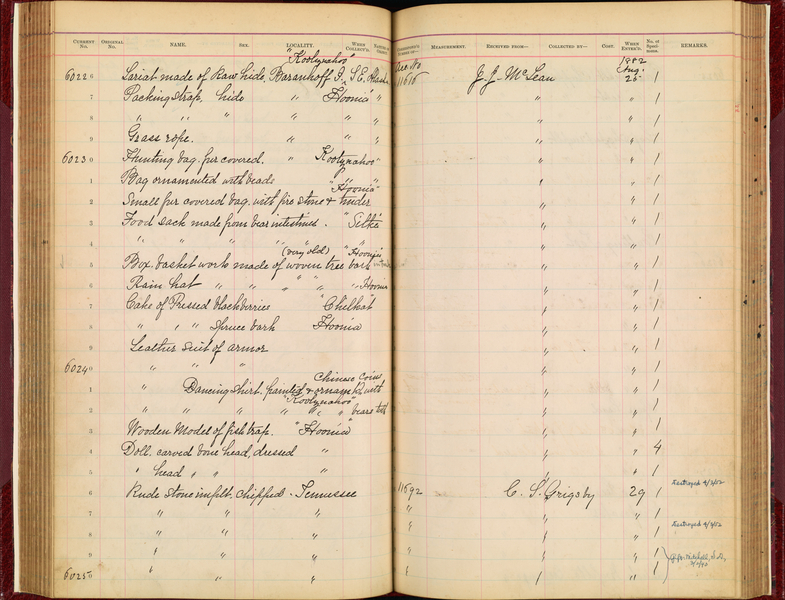 CURRENT No. ORIGINAL No. NAME. SEX. LOCALITY. WHEN COLLECT'D. MEASUREMENT. RECEIVED FROM— COLLECTED BY— COST. WHEN ENTER'D. No. of Speci mens. REMARKS.
"Kootznahoo"
60220 Lariat made of Raw hide, Baranhoff I. S.E. Alaska 11616 J. J. McLean 1882 Aug. 25 1
7 Packing strap, hide " Hoonia " " " 1
8 " " " " " " " " 1
9 Grass rope. " " " " " 1
60230 Hunting bag, fur covered. " Kootznahoo " " 1
1 Bag ornamented with beads " " 1
"Hoonia"
2 Small fur covered bag, with fire stone & tinder " " 1
3 Food sack made from bear intestines. "Sitka " " 1
4 " " " " " " " 1
(very old) "Hoonia
5 Box, basket work made of woven tree bark " " 1
6 Rain hat " " " " " Hoonia " " 1
7 Cake of Pressed blackberries "Chilkat " " 1
8 " " " Spruce bark Hoonia " " 1
9 Leather suit of armor " " 1
60240 " " " " " " 1
Chinese coins
1 " Dancing shirt, painted & ornam'td with " " 1
"Kootznahoo"
2 " " " " " " bears teeth " " 1
3 Wooden Model of fish trap. "Hoonia" " " 1
4 Doll, carved bone head, dressed " " " 4
5 " head " " " " " 1
6 Rude stone implt. chipped. Tennessee 11692 C. S. Grigsby 29 1 Destroyed 4/3/52
7 " " " " " " 1
8 " " " " " " 1 Destroyed 4/3/52
9 " " " " " 1
60250 " " " " " 1